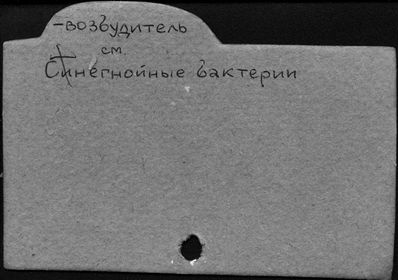 -возбудитель
см.
Синегнойные бактерии